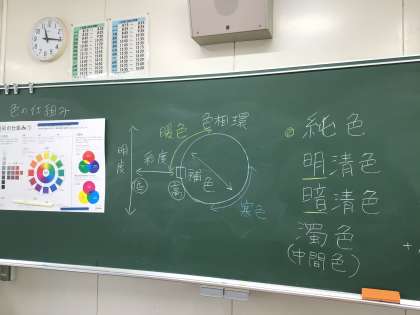 色の仕組み
色の仕組み①
明度
彩度
低
高
暖色
色相環
補色
寒色
純色
明清色
暗清色
濁色
(中間色)